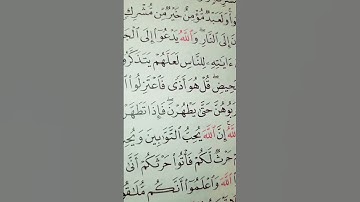 وَلَعَبْدٌ مُّؤْمِنٌ خَيْرٌ مِّن مُّشْرِكٍ
إِلَى النَّارِ وَاللَّهُ يَدْعُوٓا۟ إِلَى الْجَ
ءَايَـٰتِهِۦ لِلنَّاسِ لَعَلَّهُمْ يَتَذَكَّرُ
حِيضِ قُلْ هُوَ أَذًى فَاعْتَزِلُوا۟ ا
بُوهُنَّ حَتَّىٰ يَطْهُرْنَ فَإِذَا تَطَهَّرْ
اللَّهُ إِنَّ اللَّهَ يُحِبُّ التَّوَّٰبِينَ وَيُحِ
حَرْثٌ لَّكُمْ فَأْتُوا۟ حَرْثَكُمْ أَنَّىٰ
اللَّهَ وَاعْلَمُوٓا۟ أَنَّكُم مُّلَـٰقُو